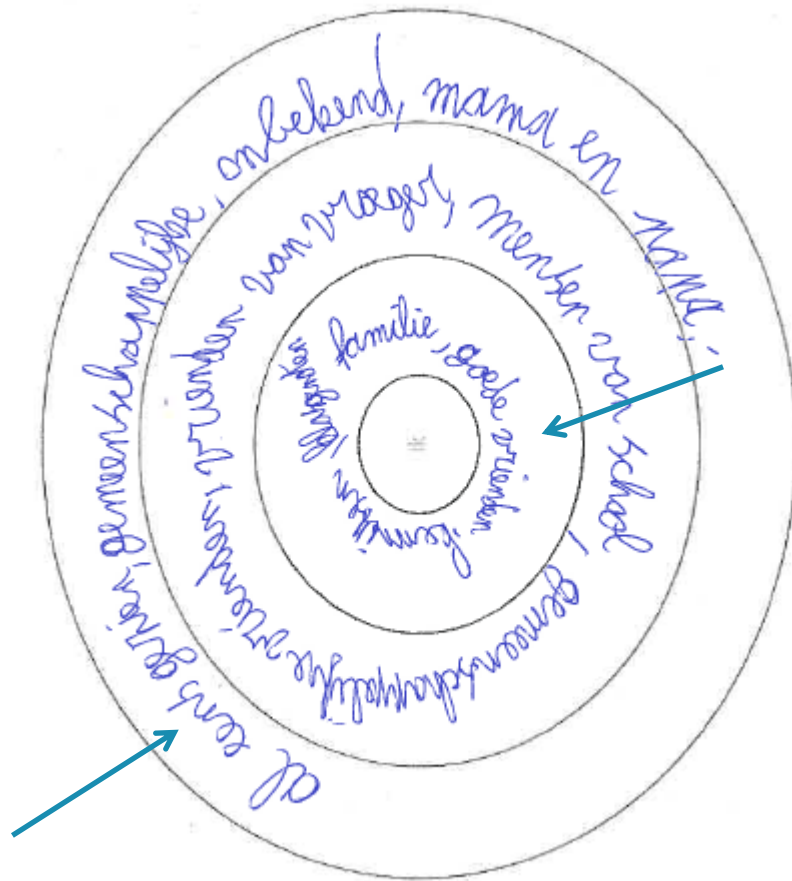 ik
familie, goede vrienden, kennissen, klasgenoten
vrienden van vroeger, mensen van school, gemeenschappelijke vrienden,
al eens gezien, gemeenschappelijke, onbekend, mama en papa,